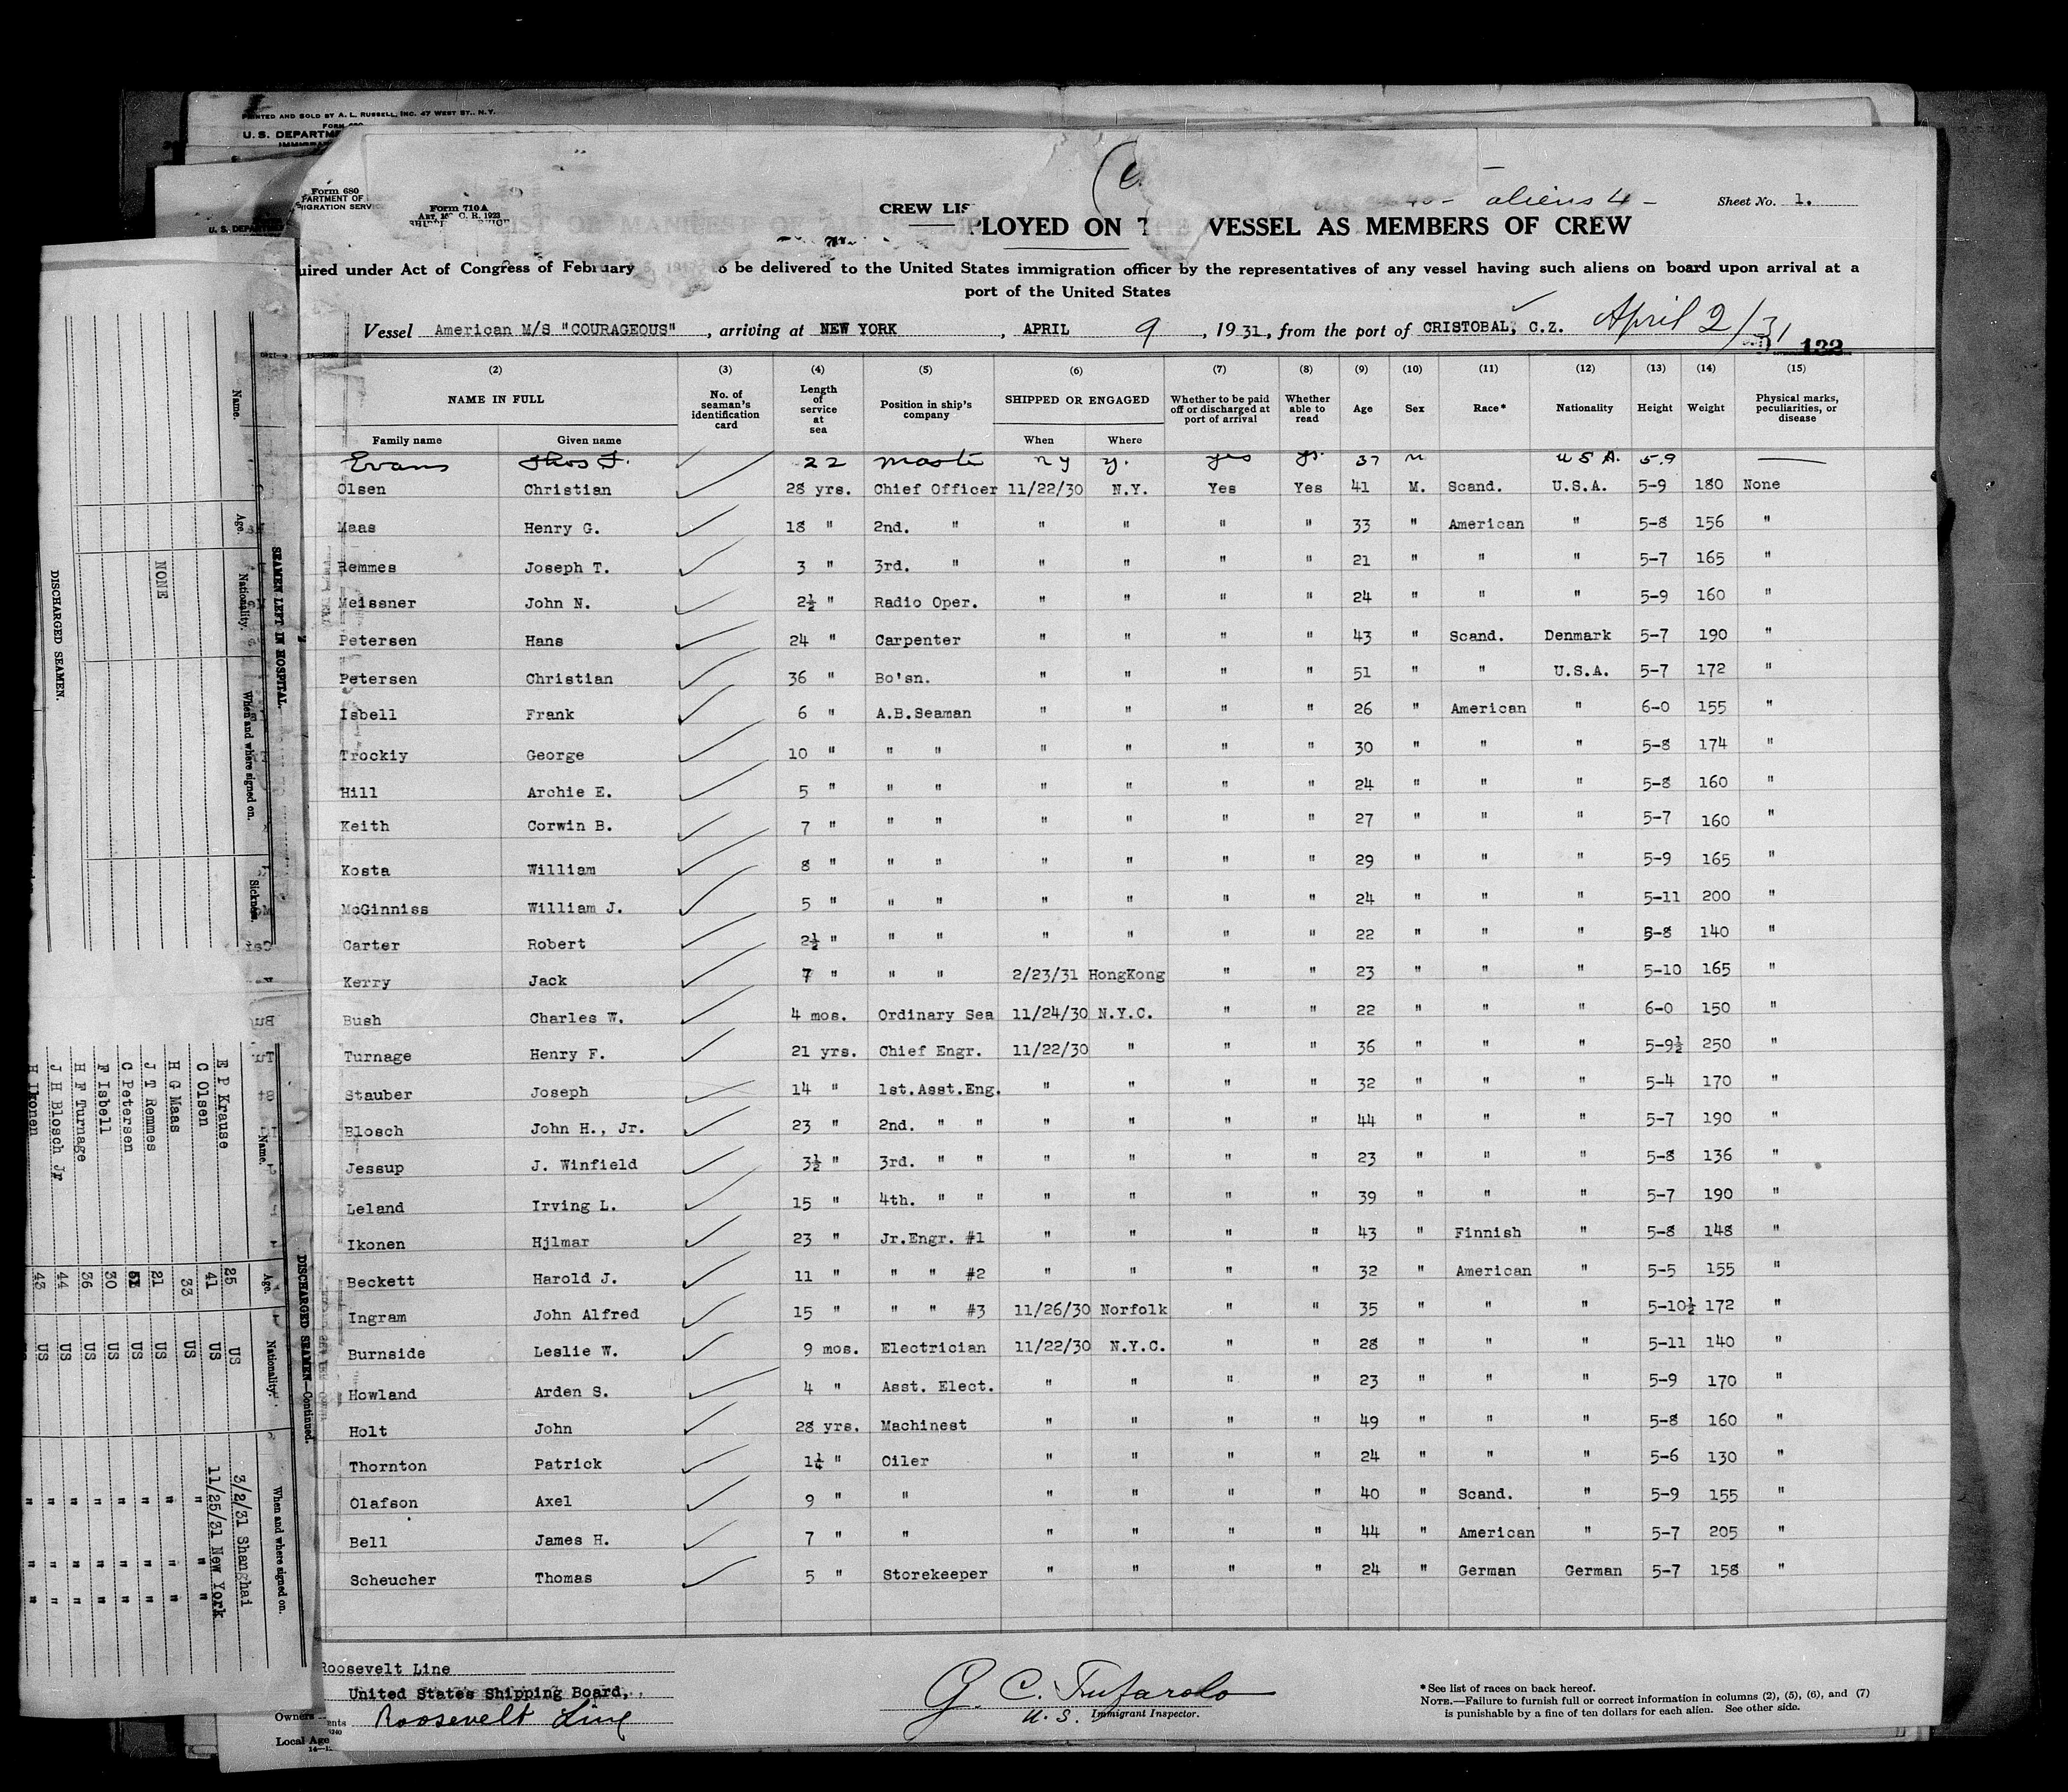 PRINTED AND SOLD BY A. L. RUSSELL, INC. 47 WEST ST., N.Y.
U. S. DEPARTM
Form 680
PARTMENT OF
MIGRATION SERVIC
Form 710A
CREW LIS
aliens 4 -
Sheet No. 1.
PLOYED ON T VESSEL AS MEMBERS OF CREW
uired under Act of Congress of February o be delivered to the United States immigration officer by the representatives of any vessel having such aliens on board upon arrival at a
port of the United States
Vessel American M/S "COURAGEOUS", arriving at NEW YORK, APRIL 9, 1931, from the port of CRISTOBAL, C.Z. April 2/31
132
(2) (3) (4) (5) (6) (7) (8) (9) (10) (11) (12) (13) (14) (15)
NAME IN FULL No. of seaman's identification card Length of service at sea Position in ship's company SHIPPED OR ENGAGED Whether to be paid off or discharged at port of arrival Whether able to read Age Sex Race* Nationality Height Weight Physical marks, peculiarities, or disease
Family name Given name When Where
Evans Thos F. 22 Master N y y. yes ys. 37 M U S A. 5.9
Olsen Christian 28 yrs. Chief Officer 11/22/30 N.Y. Yes Yes 41 M. Scand. U.S.A. 5-9 180 None
Maas Henry G. 18 " 2nd. " " " " " 33 " American " 5-8 156 "
Remmes Joseph T. 3 " 3rd. " " " " " 21 " " " 5-7 165 "
Meissner John N. 2½ " Radio Oper. " " " " 24 " " " 5-9 160 "
Petersen Hans 24 " Carpenter " " " " 43 " Scand. Denmark 5-7 190 "
Petersen Christian 36 " Bo'sn. " " " " 51 " " U.S.A. 5-7 172 "
Isbell Frank 6 " A.B.Seaman " " " " 26 " American " 6-0 155 "
Trockiy George 10 " " " " " " " 30 " " " 5-8 174 "
Hill Archie E. 5 " " " " " " " 24 " " " 5-8 160 "
Keith Corwin B. 7 " " " " " " " 27 " " " 5-7 160 "
Kosta William 8 " " " " " " " 29 " " " 5-9 165 "
McGinniss William J. 5 " " " " " " " 24 " " " 5-11 200 "
Carter Robert 2½ " " " " " " " 22 " " " 5-8 140 "
Kerry Jack 7 " " " 2/23/31 HongKong " " 23 " " " 5-10 165 "
Bush Charles W. 4 mos. Ordinary Sea 11/24/30 N.Y.C. " " 22 " " " 6-0 150 "
Turnage Henry F. 21 yrs. Chief Engr. 11/22/30 " " " 36 " " " 5-9½ 250 "
Stauber Joseph 14 " 1st.Asst.Eng. " " " " 32 " " " 5-4 170 "
Blosch John H., Jr. 23 " 2nd. " " " " " " 44 " " " 5-7 190 "
Jessup J. Winfield 3½ " 3rd. " " " " " " 23 " " " 5-8 136 "
Leland Irving L. 15 " 4th. " " " " " " 39 " " " 5-7 190 "
Ikonen Hjlmar 23 " Jr.Engr. #1 " " " " 43 " Finnish " 5-8 148 "
Beckett Harold J. 11 " " " #2 " " " " 32 " American " 5-5 155 "
Ingram John Alfred 15 " " " #3 11/26/30 Norfolk " " 35 " " " 5-10½ 172 "
Burnside Leslie W. 9 mos. Electrician 11/22/30 N.Y.C. " " 28 " " " 5-11 140 "
Howland Arden S. 4 " Asst. Elect. " " " " 23 " " " 5-9 170 "
Holt John 28 yrs. Machinest " " " " 49 " " " 5-8 160 "
Thornton Patrick 1¼ " Oiler " " " " 24 " " " 5-6 130 "
Olafson Axel 9 " " " " " " 40 " Scand. " 5-9 155 "
Bell James H. 7 " " " " " " 44 " American " 5-7 205 "
Scheucher Thomas 5 " Storekeeper " " " " 24 " German German 5-7 158 "
Roosevelt Line
United States Shipping Board,
Owners
Roosevelt Line
Local Age
G. C. Tufarolo
U. S. Immigrant Inspector.
*See list of races on back hereof.
NOTE.—Failure to furnish full or correct information in columns (2), (5), (6), and (7)
is punishable by a fine of ten dollars for each alien. See other side.
SEAMEN LEFT IN HOSPITAL.
Name. Age. Nationality. When and where signed on. Sickness.
NONE
DISCHARGED SEAMEN.
DISCHARGED SEAMEN—Continued.
Name. Age. Nationality. When and where signed on.
E P Krause 25 US 3/2/31 Shanghai
C Olsen 41 US 11/25/31 New York
H G Maas 33 US " " "
J T Remmes 21 US " " "
C Petersen 51 US " " "
F Isbell 30 US " " "
H F Turnage 36 US " " "
J H Blosch Jr 44 US " " "
H Ikonen 43 US " " "